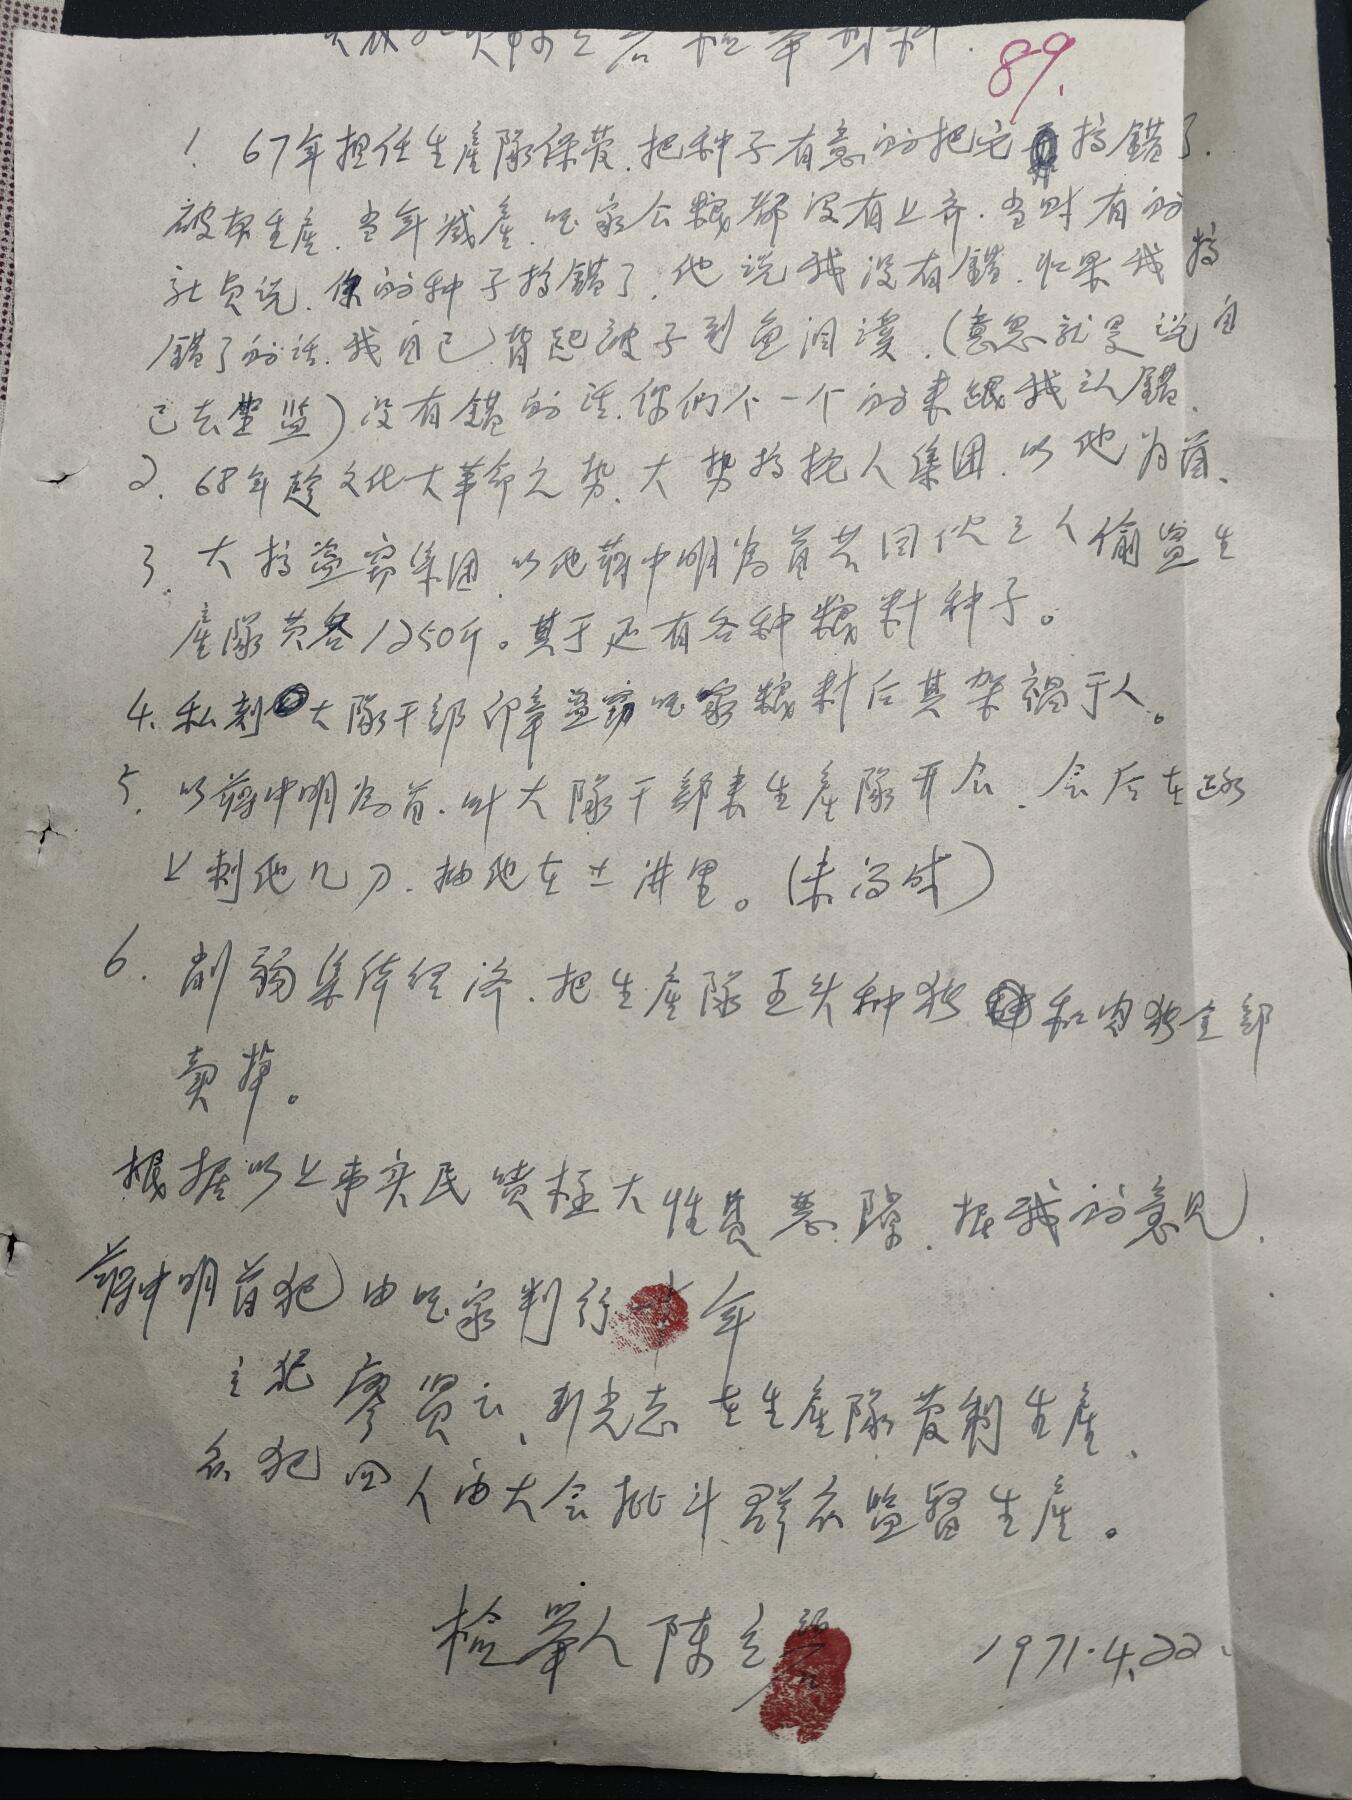 检举材料.
89.
1. 67年担任生産隊保管.把种子有意的把它搞错了.
破坏生産.当年减産.国家公粮都没有上齐.当时有的
社员说.你的种子搞错了.他说我没有错.如果我搞
错了的话.我自己背起被子到鱼洞溪.(意思就是说自
己去坐监)没有错的话.你们个一个的来跟我认错.
2. 68年趁文化大革命之势.大势搞拖人集团.以他为首.
3. 大搞盗窃集团.以他蒋中明为首共同伙三人偷盗生
産隊黄谷1250斤。其于还有各种粮料种子。
4. 私刻大隊干部印章盗窃国家粮料后其架祸于人。
5. 以蒋中明为首.叫大隊干部来生産隊开会.会后在路
上刺他几刀.抽他在土井里。(未得成)
6. 削弱集体经济.把生産隊五头种猪和肉猪全部
卖掉。
根据以上事实民愤极大性质恶.据我的意见.
蒋中明首犯由国家判行年
主犯廖贤云、光志在生産隊管制生産.
众犯四人由大会批斗群众监督生産。
检举人陈立
1971.4.22.